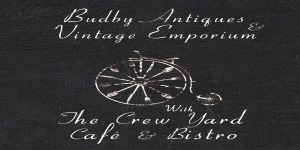 Budby Antiques
&
Vintage Emporium
With
The Crew Yard
Café & Bistro